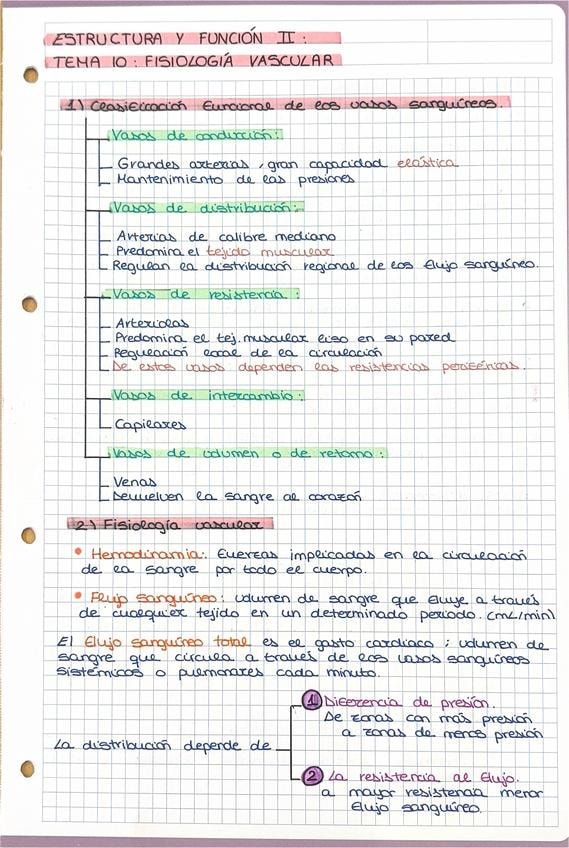 ESTRUCTURA Y FUNCIÓN II:
TEMA 10: FISIOLOGÍA VASCULAR
1) Clasificación funcional de los vasos sanguíneos.
Vasos de conducción:
Grandes arterias, gran capacidad elástica
Mantenimiento de las presiones
Vasos de distribución:
Arterias de calibre mediano
Predomina el tejido muscular
Regulan la distribución regional de los flujo sanguíneo.
Vasos de resistencia:
Arteriolas
Predomina el tej. muscular liso en su pared
Regulación local de la circulación
De estos vasos dependen las resistencias periféricas.
Vasos de intercambio:
Capilares
Vasos de volumen o de retorno:
Venas
Devuelven la sangre al corazón
2) Fisiología vascular
• Hemodinamia: Fuerzas implicadas en la circulación
de la sangre por todo el cuerpo.
• Flujo sanguíneo: volumen de sangre que fluye a través
de cualquier tejido en un determinado periodo. (mL/min)
El flujo sanguíneo total es el gasto cardíaco; volumen de
sangre que circula a través de los vasos sanguíneos
sistémicos o pulmonares cada minuto.
La distribución depende de
1 Diferencia de presión.
De zonas con más presión
a zonas de menos presión
2 La resistencia al flujo.
a mayor resistencia menor
flujo sanguíneo.